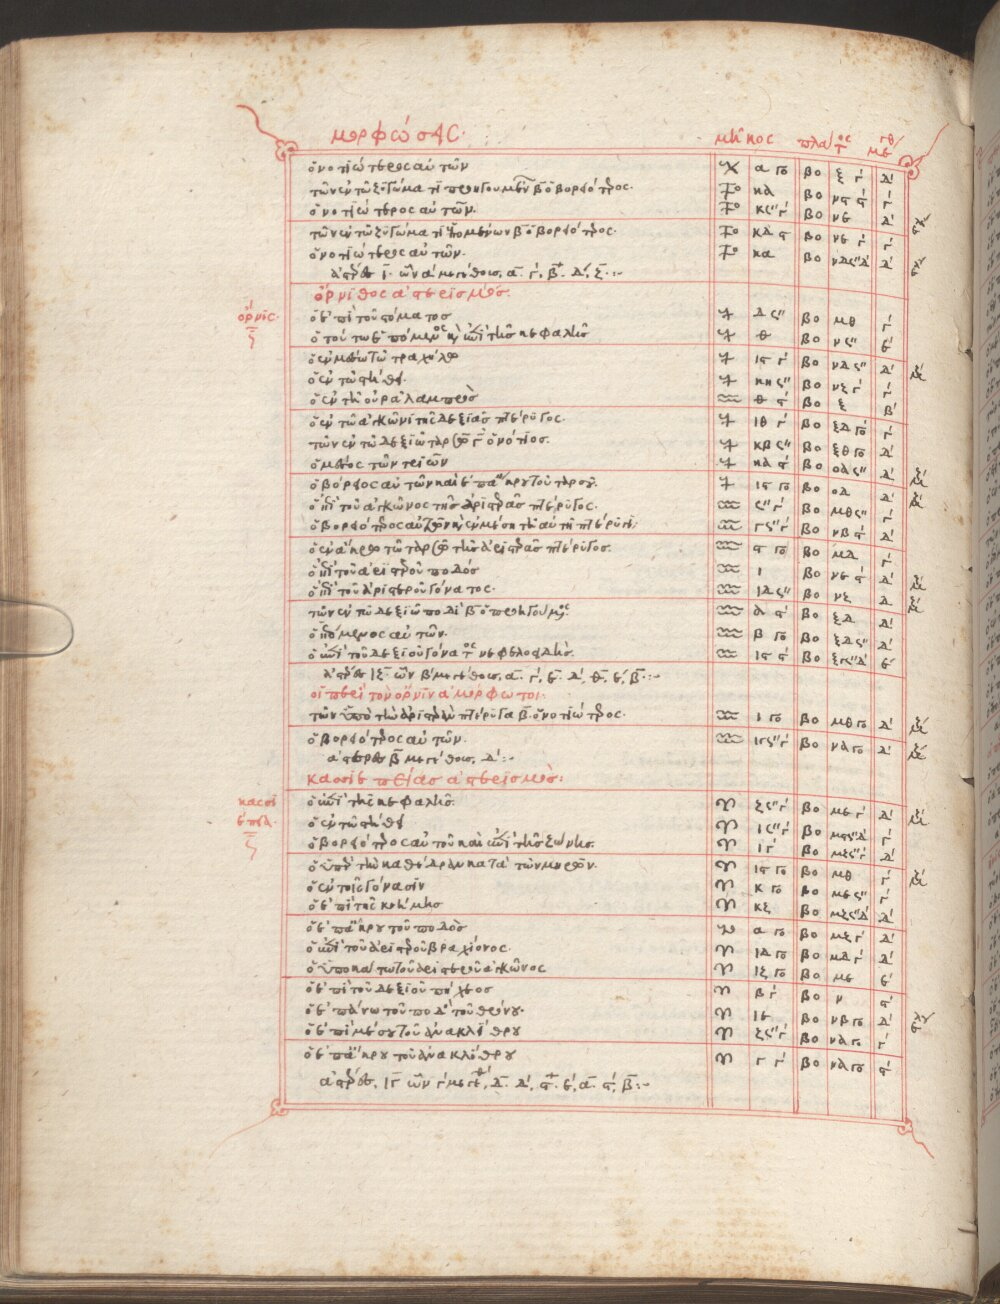 μορφώσεις· μῆκος πλάτος μέγεθ
ὁ νοτιώτερος αὐτῶν α γο βο ξ γ δ
τῶν ἐν τῷ ζυγώματι προηγουμένων β ὁ βορειότερος· κα βο νϛ ϛ γ
ὁ νοτιώτερος αὐτῶν. κϛ γ βο νε δ
τῶν ἐν τῷ ζυγώματι ἑπομένων β ὁ βορειότερος· κδ ϛ βο νε γ γ
ὁ νοτιώτερος αὐτῶν. κα βο νδ δ
ἀστέρες ι ὧν α μεγέθους, α γ, β δ, ζ
ὄρνιθος ἀστερισμός.
ὄρνις·
ὁ ἐπὶ τοῦ στόματος δ βο μθ γ
ὁ τούτῳ ἑπόμενος καὶ ἐπὶ τῆς κεφαλῆς θ βο ν ε
ὁ ἐν μέσῳ τῷ τραχήλῳ ιϛ γ βο νδ δ
ὁ ἐν τῷ στήθει κη βο νζ γ γ
ὁ ἐν τῇ οὐρᾷ λαμπρός θ ϛ βο ξ β
ὁ ἐν τῷ ἀγκῶνι τῆς δεξιᾶς πτέρυγος· ιθ γ βο ξδ γο γ
τῶν ἐν τῷ δεξιῷ ταρσῷ γ ὁ νότιος. κβ βο ξθ γο δ
ὁ μέσος τῶν τριῶν κα ϛ βο οα δ
ὁ βόρειος αὐτῶν καὶ ἐπ' ἄκρου τοῦ ταρσοῦ. ιϛ γο βο οδ δ
ὁ ἐπὶ τοῦ ἀγκῶνος τῆς ἀριστερᾶς πτέρυγος. γ βο μθ γ
ὁ βορειότερος αὐτοῦ καὶ ἐν μέσῃ τῇ αὐτῇ πτέρυγι γ γ βο νβ ϛ δ
ὁ ἐν ἄκρῳ τῷ ταρσῷ τῆς ἀριστερᾶς πτέρυγος. ϛ γο βο μδ γ
ὁ ἐπὶ τοῦ ἀριστεροῦ ποδός ι βο νε ϛ δ
ὁ ἐπὶ τοῦ ἀριστεροῦ γόνατος. ιδ βο νζ δ
τῶν ἐν τῷ δεξιῷ ποδὶ β ὁ προηγούμενος α ϛ βο ξδ δ
ὁ ἑπόμενος αὐτῶν. β γο βο ξδ δ
ὁ ἐπὶ τοῦ δεξιοῦ γόνατος νεφελοειδής. ιϛ ϛ βο ξγ δ ε
ἀστέρες ιζ ὧν β μεγέθους, α γ, ε δ, θ ε, β
οἱ περὶ τὸν ὄρνιν ἀμόρφωτοι·
τῶν ὑπὸ τὴν ἀριστερὰν πτέρυγα β ὁ νοτιώτερος· ι γο βο μθ γο δ
ὁ βορειότερος αὐτῶν. ιγ γ βο να γο δ
ἀστέρες β μεγέθους, δ
κασσιεπείας ἀστερισμός:
κασσιέπεια·
ὁ ἐπὶ τῆς κεφαλῆς. ζ γ βο με γ δ
ὁ ἐν τῷ στήθει ι γ βο μϛ δ γ
ὁ βορειότερος αὐτοῦ καὶ ἐπὶ τῆς ζώνης. ιγ βο μζ γ δ
ὁ ὑπὲρ τὴν καθέδραν κατὰ τῶν μηρῶν. ιϛ γο βο μθ γ
ὁ ἐν τοῖς γόνασιν κ γο βο με γ
ὁ ἐπὶ τῆς κνήμης κζ βο μζ δ δ
ὁ ἐπ' ἄκρου τοῦ ποδός α γο βο μζ γ δ
ὁ ἐπὶ τοῦ ἀριστεροῦ βραχίονος· ιδ γο βο μδ γ δ
ὁ ὑποκάτω τοῦ ἀριστεροῦ ἀγκῶνος ιζ γο βο με ε
ὁ ἐπὶ τοῦ δεξιοῦ πήχεος β γ βο ν ϛ
ὁ ἐπάνω τοῦ ποδὸς τοῦ θρόνου. ιε βο νβ γο δ
ὁ ἐπὶ μέσου τοῦ ἀνακλίθρου ζ γ βο να γο γ
ὁ ἐπ' ἄκρου τοῦ ἀνακλίθρου γ γ βο να γο ϛ
ἀστέρες, ιγ ὧν γ μεγέθους, δ δ, ϛ ε, α ϛ, β